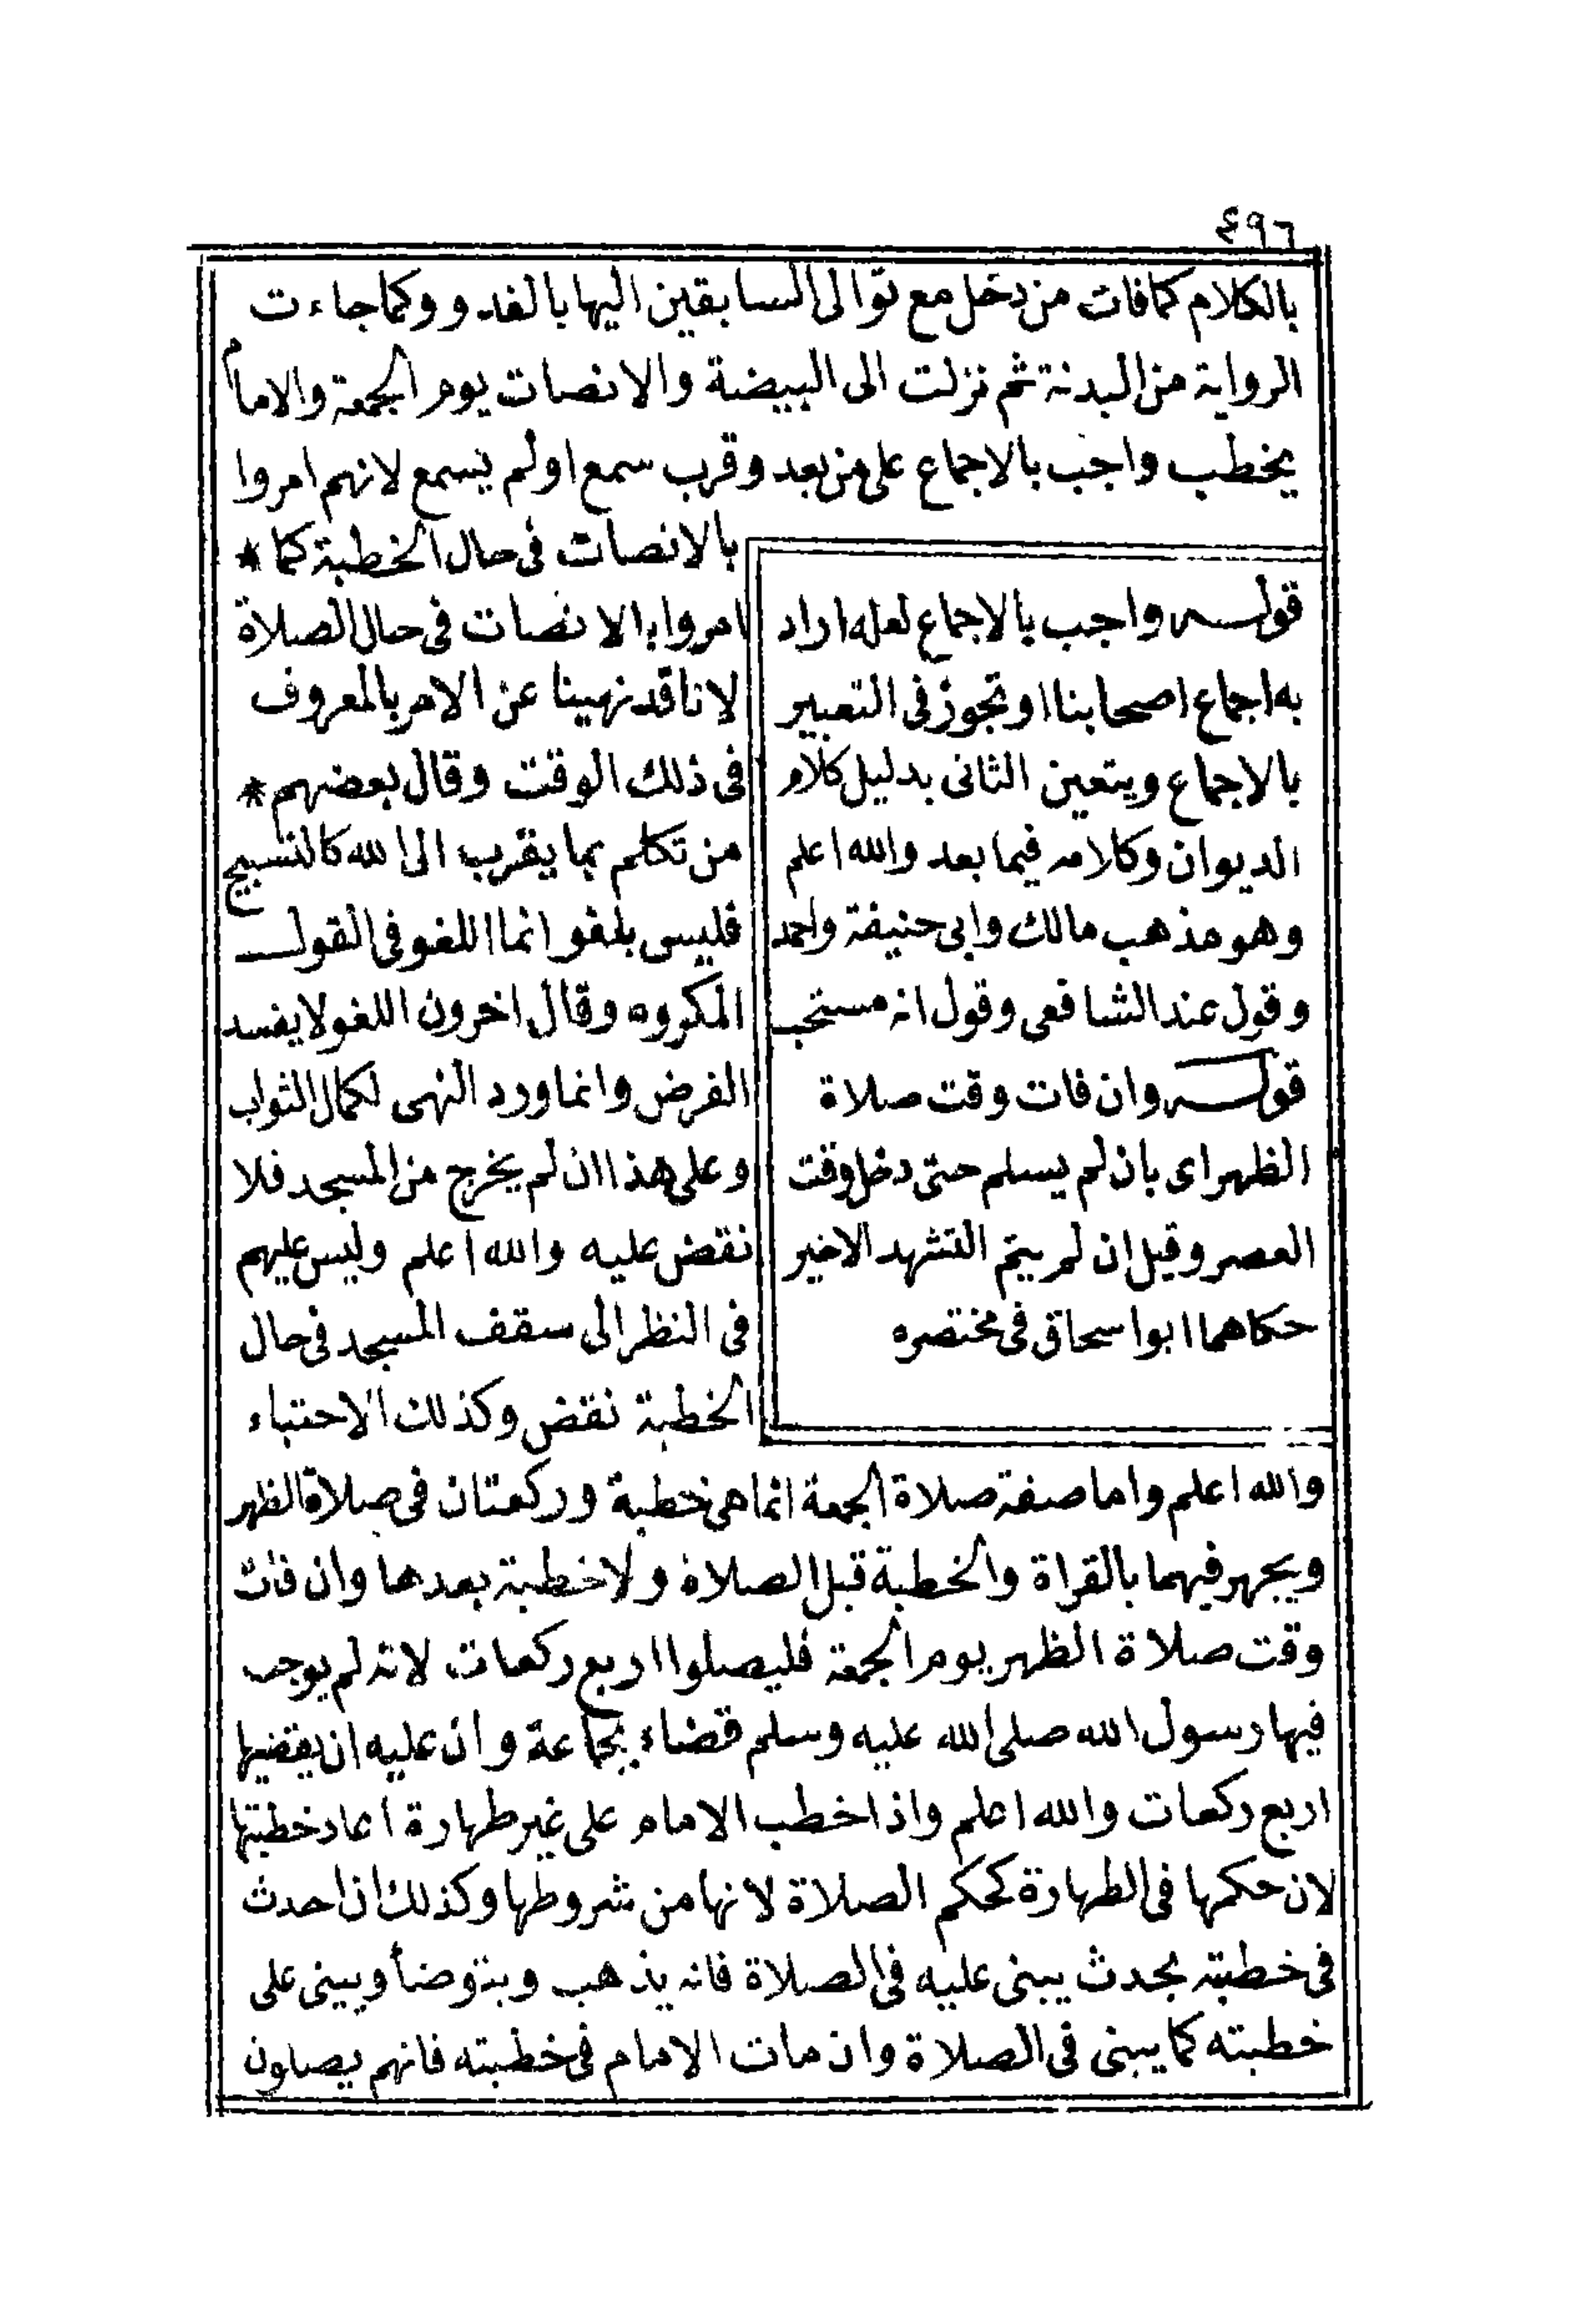 ٤٩٦
بالكلام كمافات من دخل مع توالى السابقين اليها بالغدو وكما جاءت
الرواية من البدنة ثم نزلت الى البيضة والانصات يوم الجمعة والامام
يخطب واجب بالاجماع على من بعد وقرب سمع اولم يسمع لانهم امروا
بالانصات فى حال الخطبة كما *
امروا بالانصات فى حال الصلاة
لانا قد نهينا عن الامر بالمعروف
فى ذلك الوقت وقال بعضهم *
من تكلم بما يقرب الى الله كالتسبيح
فليس بلغو انما اللغو فى القول
المكروه وقال اخرون اللغو لا يفسد
الفرض وانما ورد النهى لكمال الثواب
وعلى هذا ان لم يخرج من المسجد فلا
نقض عليه والله اعلم وليس عليهم
فى النظر الى سقف المسجد فى حال
الخطبة نقض وكذلك الاحتباء
قوله واجب بالاجماع لعله اراد
به اجماع اصحابنا او تجوز فى التعبير
بالاجماع ويتعين الثانى بدليل كلام
الديوان وكلامه فيما بعد والله اعلم
وهو مذهب مالك وابى حنيفة واحمد
وقول عند الشافعى وقول انه مستحب
قوله وان فات وقت صلاة
الظهر اى بان لم يسلم حتى دخل وقت
العصر وقيل ان لم يتم التشهد الاخير
حكاهما ابو اسحاق فى مختصره
والله اعلم واما صفة صلاة الجمعة انما هى خطبة وركعتان فى صلاة الظهر
ويجهر فيهما بالقراة والخطبة قبل الصلاة ولا خطبة بعدها وان فات
وقت صلاة الظهر يوم الجمعة فليصلوا اربع ركعات لانه لم يوجب
فيها رسول الله صلى الله عليه وسلم قضاء بجماعة وان عليه ان يقضيها
اربع ركعات والله اعلم واذا خطب الامام على غير طهارة اعاد خطبتها
لان حكمها فى الطهارة كحكم الصلاة لانها من شروطها وكذلك اذا حدث
فى خطبته بحدث يبنى عليه فى الصلاة فانه يذهب ويتوضأ ويبنى على
خطبته كما يبنى فى الصلاة وان مات الامام فى خطبته فانهم يصلون